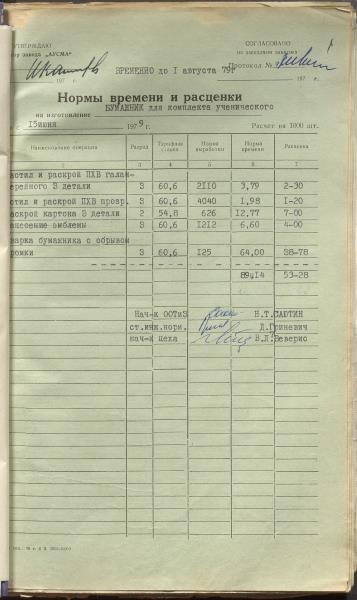 УТВЕРЖДАЮ СОГЛАСОВАНО
ор завода „АУСМА" на заседании завкома
Протокол №
197 г. ВРЕМЕННО до I августа 79г 197 г.
Нормы времени и расценки
на изготовление БУМАЖНИК для комплекта ученического
с 15июня 1979г. Расчет на 1000 шт.
Наименование операции Разряд Тарифная ставка Норма выработки Норма времени Расценка
2 3 4 5 6 7
астил и раскрой ПХВ галан-
ерейного 3 детали 3 60,6 2110 3,79 2-30
стил и раскрой ПХВ прозр. 3 60,6 4040 1,98 1-20
аскрой картона 3 детали 2 54,8 626 12,77 7-00
анесение эмблемы 3 60,6 1212 6,60 4-00
варка бумажника с обрывом
ромки 3 60,6 125 64,00 38-78
89,14 53-28
Нач-к ООТиЗ Н.Т.САФТИН
ст.инж.норм. Д.Гриневич
нач-к цеха В.Л.Веверис